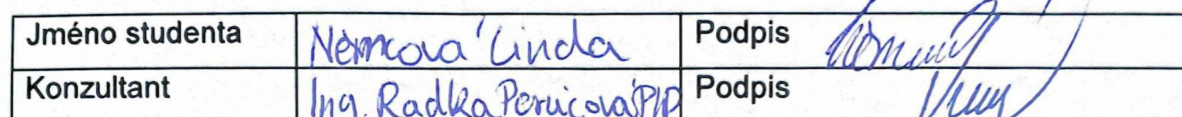 Jméno studenta Němcová Linda Podpis
Konzultant Ing. Radka Pernicová PhD Podpis